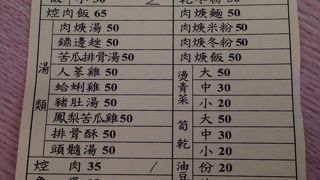 焢肉飯 65
湯類
肉焿湯 50
鏽邊趖 50
苦瓜排骨湯 50
人蔘雞 50
蛤蜊雞 50
豬肚湯 50
鳳梨苦瓜雞 50
排骨酥 50
頭髓湯 50
焢肉 35
肉焿麵 50
肉焿米粉 50
肉焿冬粉 50
肉焿飯 50
燙青菜
大 50
中 30
小 20
筍乾
大 50
中 30
小 20
份 20